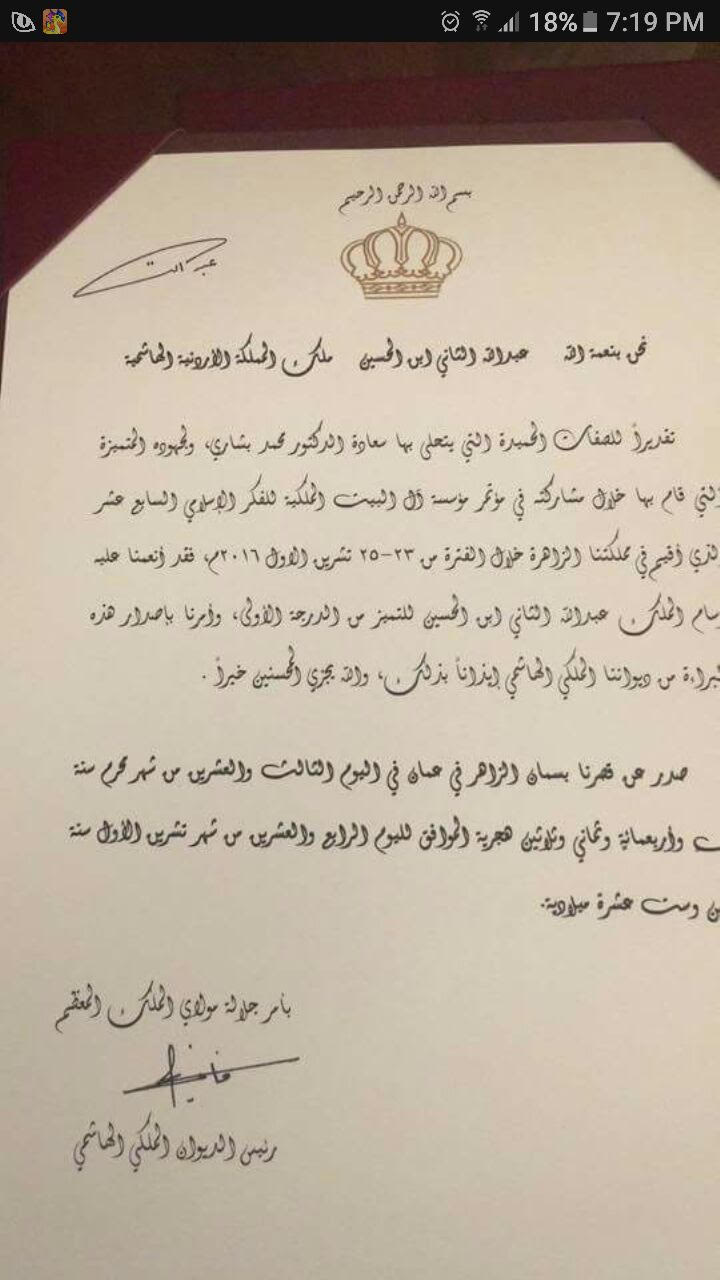 18% 7:19 PM
بسم الله الرحمن الرحيم
نحن بنعمة الله عبدالله الثاني ابن الحسين ملك المملكة الأردنية الهاشمية
تقديراً للصفات الحميدة التي يتحلى بها سعادة الدكتور محمد بشاري، ولجهوده المتميزة
التي قام بها خلال مشاركته في مؤتمر مؤسسة آل البيت الملكية للفكر الإسلامي السابع عشر
لذي أقيم في مملكتنا الزاهرة خلال الفترة من ٢٣-٢٥ تشرين الاول ٢٠١٦م، فقد أنعمنا عليه
سام الملك عبدالله الثاني ابن الحسين للتميز من الدرجة الأولى، وأمرنا بإصدار هذه
لبراءة من ديواننا الملكي الهاشمي إيذاناً بذلك، والله يجزي المحسنين خيراً .
صدر عن قصرنا بسمان الزاهر في عمان في اليوم الثالث والعشرين من شهر محرم سنة
وأربعمائة وثماني وثلاثين هجرية الموافق لليوم الرابع والعشرين من شهر تشرين الأول سنة
وست عشرة ميلادية.
بأمر جلالة مولاي الملك المعظم
رئيس الديوان الملكي الهاشمي